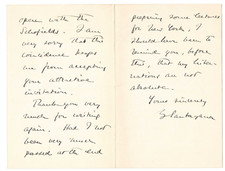 opera with the
Schofields. I am
very sorry that this
coincidence keeps
me from accepting
your attractive
invitation.
Thank you very
much for writing
again. Had I not
been very much
pressed at the end
preparing some lectures
for New York, I
should have been to
remind you, before
this, that my
are not
absolute.
Yours sincerely
G Santayana